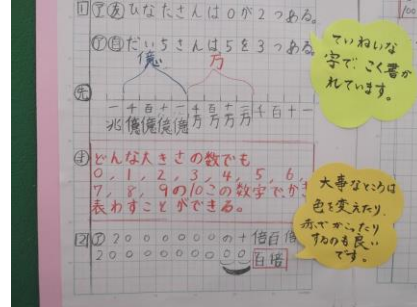 1 ㋐友 ひなたさんは0が2つある。
㋑自 だいちさんは5を3つある。
億 万
先
一 千 百 十 一 千 百 十 一 千 百 十 一
兆 億 億 億 億 万 万 万 万
ま どんな大きさの数でも
0, 1, 2, 3, 4, 5, 6,
7, 8, 9の10この数字でかき
表わすことができる。
2 ㋐ 20000000の十倍百倍
2000000000 百倍
ていねいな
字で、こく書か
れています。
大事なところは
色を変えたり、
赤でかこったり
するのも良い
です。